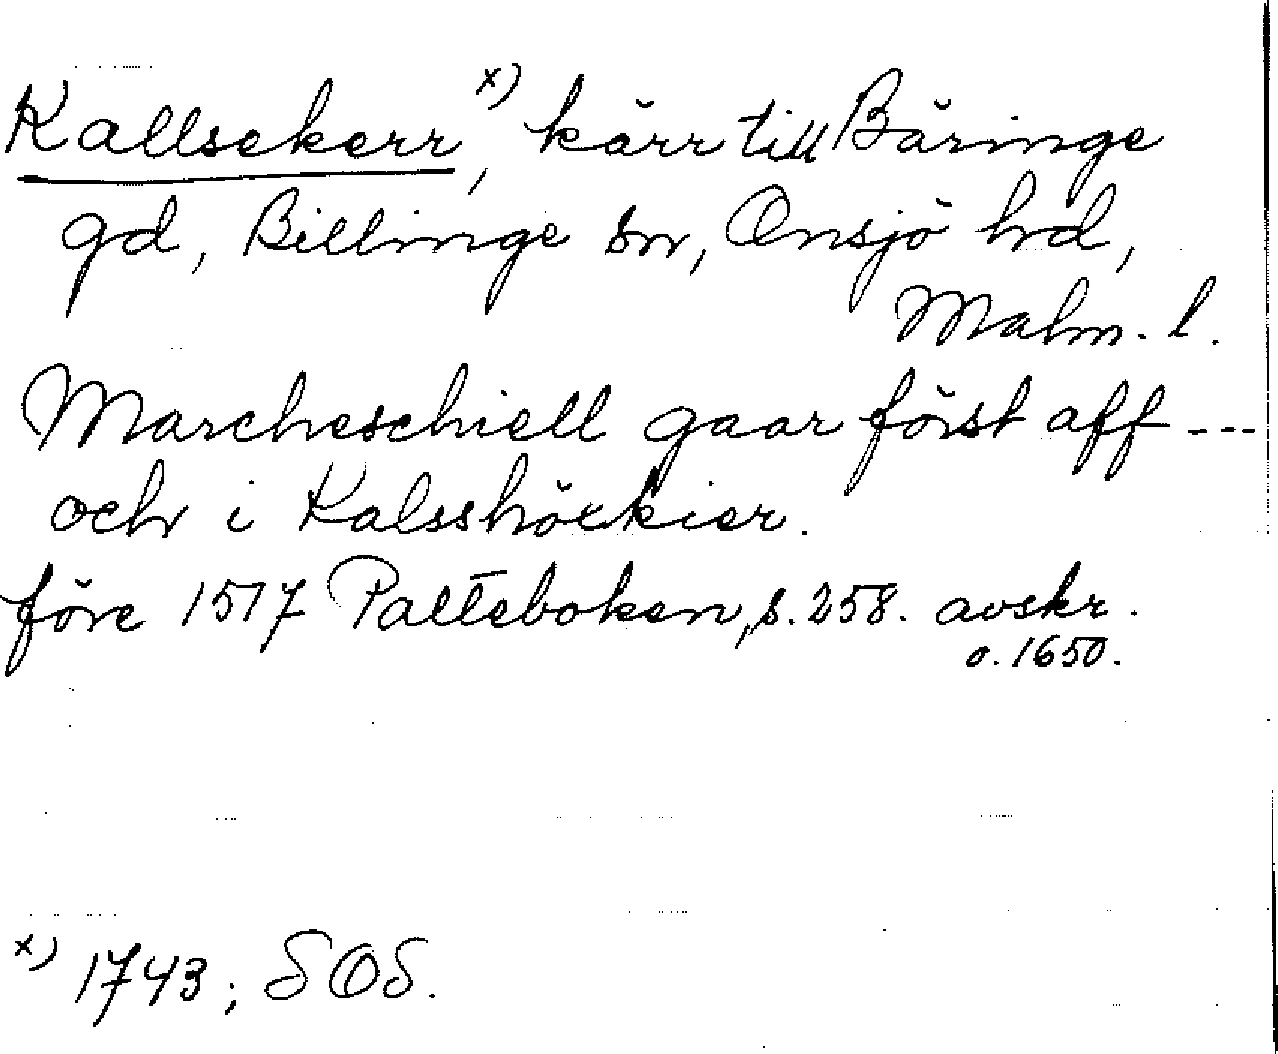 Kallsekerr, x) kärr till Bäringe
gd, Billinge sn, Onsjö hd,
Malm. l.
Marcheschiell gaar först aff ---
och i Kalsshörkier.
före 1517 Palteboken, s. 258. avskr.
o. 1650.
x) 1743; SOS.